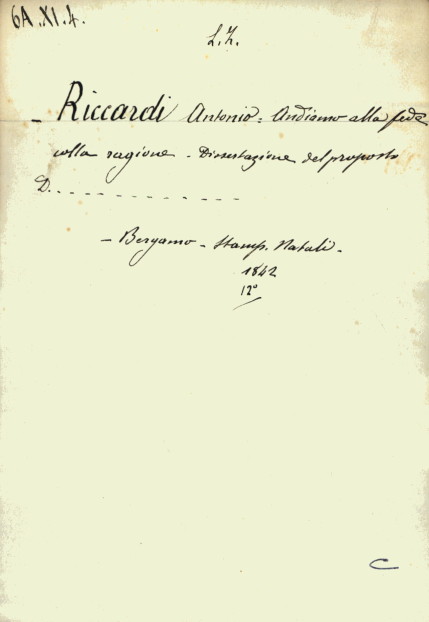 6A.XI.4.
L.Z.
- Riccardi Antonio: Andiamo alla fede
colla ragione - Dissertazione del proposto
D. . . . . . . . . . . . .
- Bergamo - Stamp. Natali -
1842
12°
C